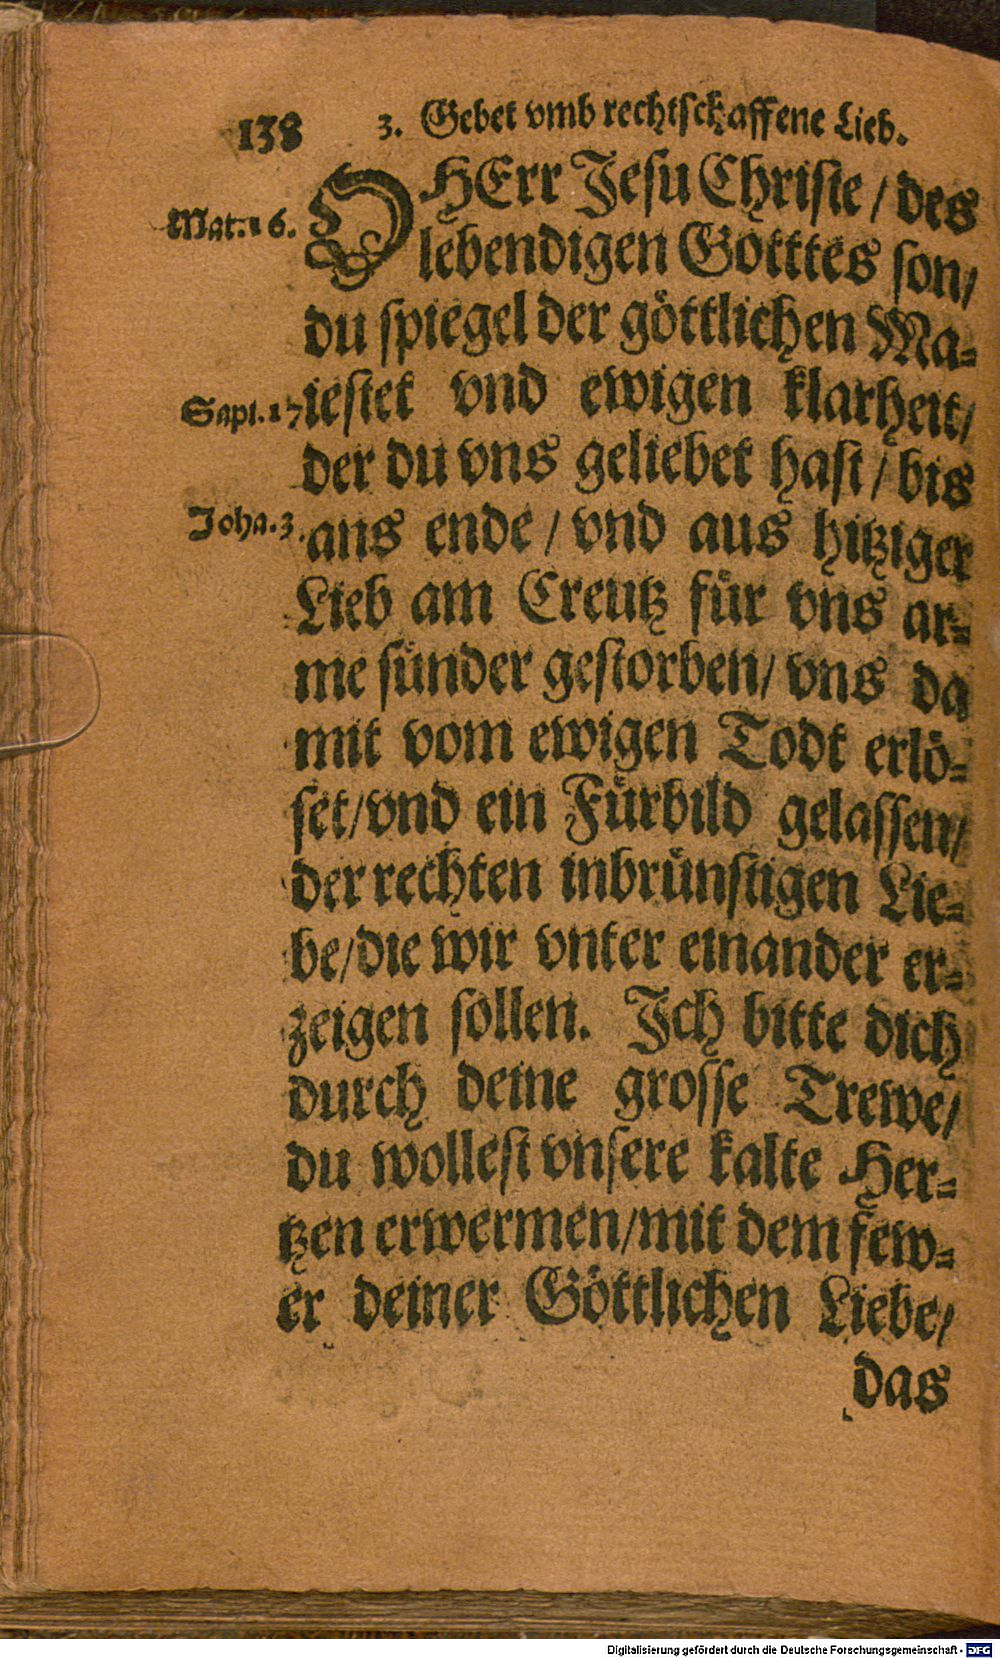 138 3. Gebet vmb rechtschaffene Lieb.
Mat. 16. O HErr Jesu Christe / des
lebendigen Gotttes son /
du spiegel der göttlichen Ma-
Sapi. 17 iestet vnd ewigen klarheit /
der du vns geliebet hast / bis
Joha. 3. ans ende / vnd aus hitziger
Lieb am Creutz für vns ar-
me sünder gestorben / vns da
mit vom ewigen Todt erlö-
set / vnd ein Fürbild gelassen /
der rechten inbrünstigen Lie-
be / die wir vnter einander er-
zeigen sollen. Jch bitte dich
durch deine grosse Trewe /
du wollest vnsere kalte Her-
tzen erwermen / mit dem few-
er deiner Göttlichen Liebe /
das
Digitalisierung gefördert durch die Deutsche Forschungsgemeinschaft - DFG